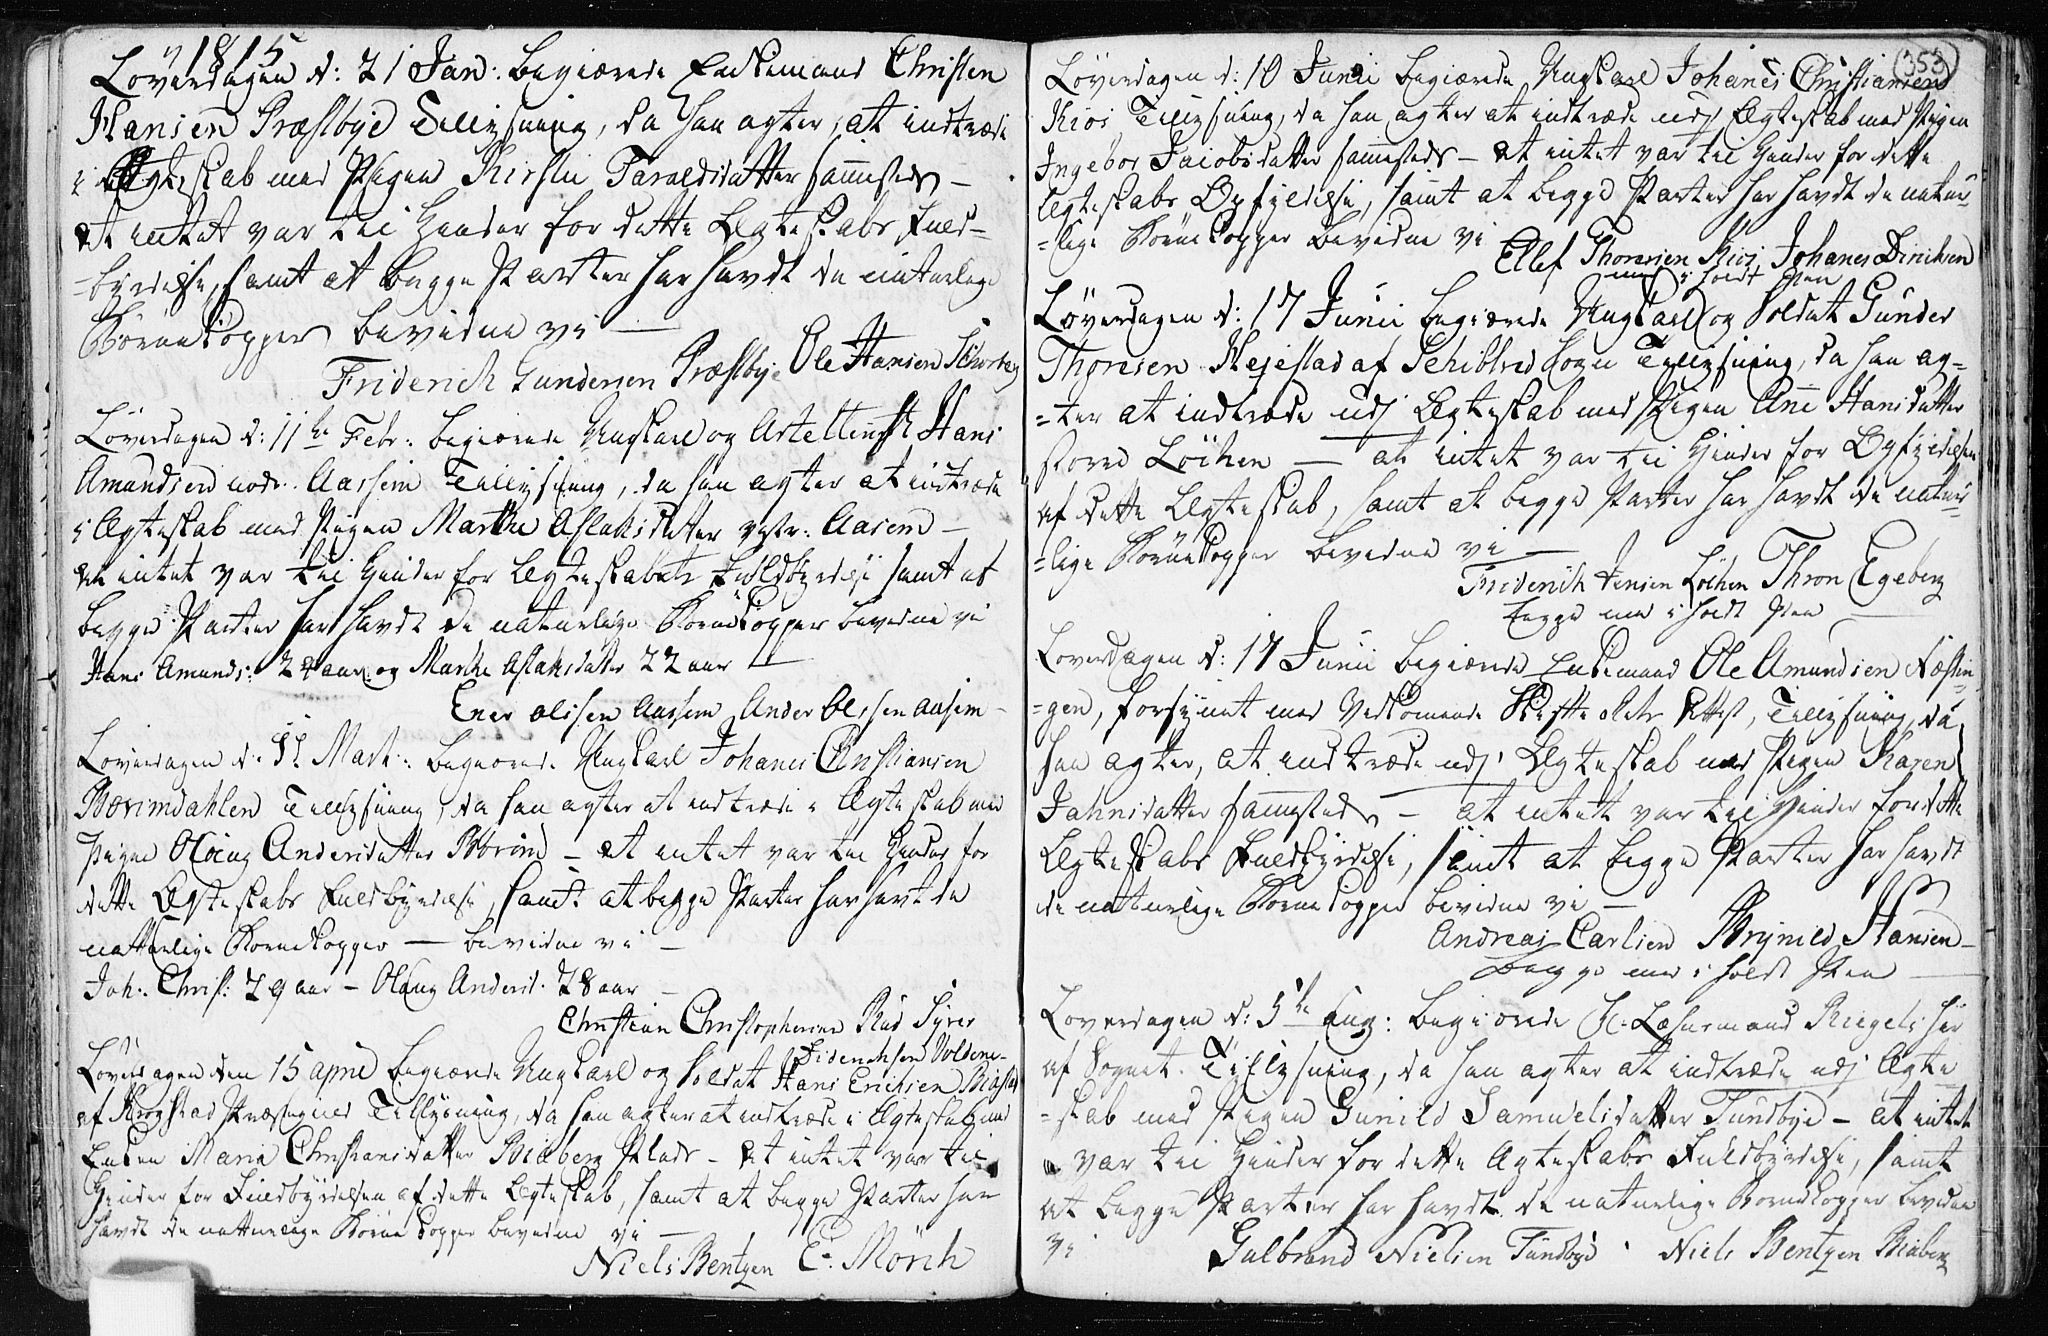 1815
Löverdagen d: 21 Jan: begiærede Enkemand Christen
Hansen Præstbye Tillysning, da han agter, at indtræde
i Ægteskab med Pigen Kirstie Taraldsdatter sammesteds –
At intet var til Hinder for dette Ægteskabs Fuld-
-byrdelse, samt at begge Parter har havdt de naturlige
Börnekopper bevidne vi —
Friderich Gundersen Præstbye Ole Hansen
Löverdagen d: 11te Febr: begiærede Ungkarl og Hans
Amundsen nodr. Aassem Tillysning, da han agter at indtræde
i Ægteskab med Pigen Marthe Aslaksdatter vestr: Aasem –
At intet var til Hinder for Ægteskabets Fuldbyrdelse samt at
begge Parter har havdt de naturlige Börnekopper bevidne vi
Hans Amunds: 24 aar og Marthe Aslaksdatter 22 aar —
Ener olsen Aassem Ander Olssen aasem –
Löverdagen d. 11 Mart: begiærede Ungkarl Johanes Christiansen
Börimdahlen Tillysning, da han agter at indtræde i Ægteskab med
Pigen Olaug Andersdatter Börim – At intet var til Hinder for
dette Ægteskabs Fuldbyrdelse, samt at begge Parter har havt de
naturlige Börnekopper — bevidne vi –
Joh: Christ: 29 aar – Olaug Andersd. 28 aar –
Christian Christophersen Rud Syver
Diderichsen Voldene –
Löverdagen den 15 april begiærede Ungkarl og Soldat Hans Erichsen
af Krogstad Præstegield Tillysning, da han agter at indtræde i Ægteskab med
Enken Maria Christiansdatter Biaberg Plads – At intet var til
Hinder for Fuldbyrdelsen af dette Ægteskab, samt at begge Parter har
havdt de naturlige Börnekopper bevidne vi —
Niels Bentzen E. Mörch
353
Löverdagen d: 10 Junii begiærede Ungkarl Johanes Christiansen
Kios Tillysning, da han agter at indtræde udj Ægteskab med Pigen
Ingebor Jacobsdatter sammesteds – At intet var til Hinder for dette
Ægteskabs Opfyldelse, samt at begge Parter har havdt de natur-
-lige Börnekopper bevidne vi
Ellef Thoresen Kios Johanes Dirichsen
med i holdt Pen
Löverdagen d: 17 Junii begiærede Ungkarl og Soldat Gunder
Thoresen Hejestad af Schibtved Sogn Tillysning, da han ag-
-ter at indtræde udj Ægteskab med Pigen Ane Hansdatter
store Löchen — at intet var til Hinder for Opfyldelsen
af dette Ægteskab, samt at begge Parter har havdt de natur-
-lige Börnekopper bevidne vi —
Friderich Jensen Löchen Thron Egeberg
begge med i holdt Pen —
Loverdagen d: 17 Junii begiærede Enkemand Ole Amundsen Næstin-
-gen, forsynet med Vedkomende Skifte Rets Attest, Tillysning, da
han agter, at indtræde udj Ægteskab med Pigen Karen
Jahnsdatter sammesteds – at intet var til Hinder for dette
Ægteskabs Fuldbyrdelse, samt at begge Parter har havdt
de naturlige Börnekopper bevidne vi –
Andreas Carlsen Brynild Hansen –
begge med i holdt Pen —
Loverdagen d: 5te Aug: begiærede Hr. Riegels her
af Sognet Tillysning, da han agter at indtræde udj Ægte-
-skab med Pigen Gunild Samuelsdatter Tundbye – at intet
var til Hinder for dette Ægteskabs Fuldbyrdelse, samt
at begge Parter har havdt de naturlige Börnekopper bevidne
vi Gulbrand Nielsen Tundbye . Niels Bentzen Biaberg